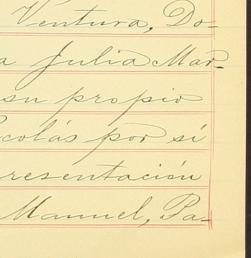 Ventura, Do-
a Julia Mar-
su propio
colás por sí
resentación
Manuel, Pa-